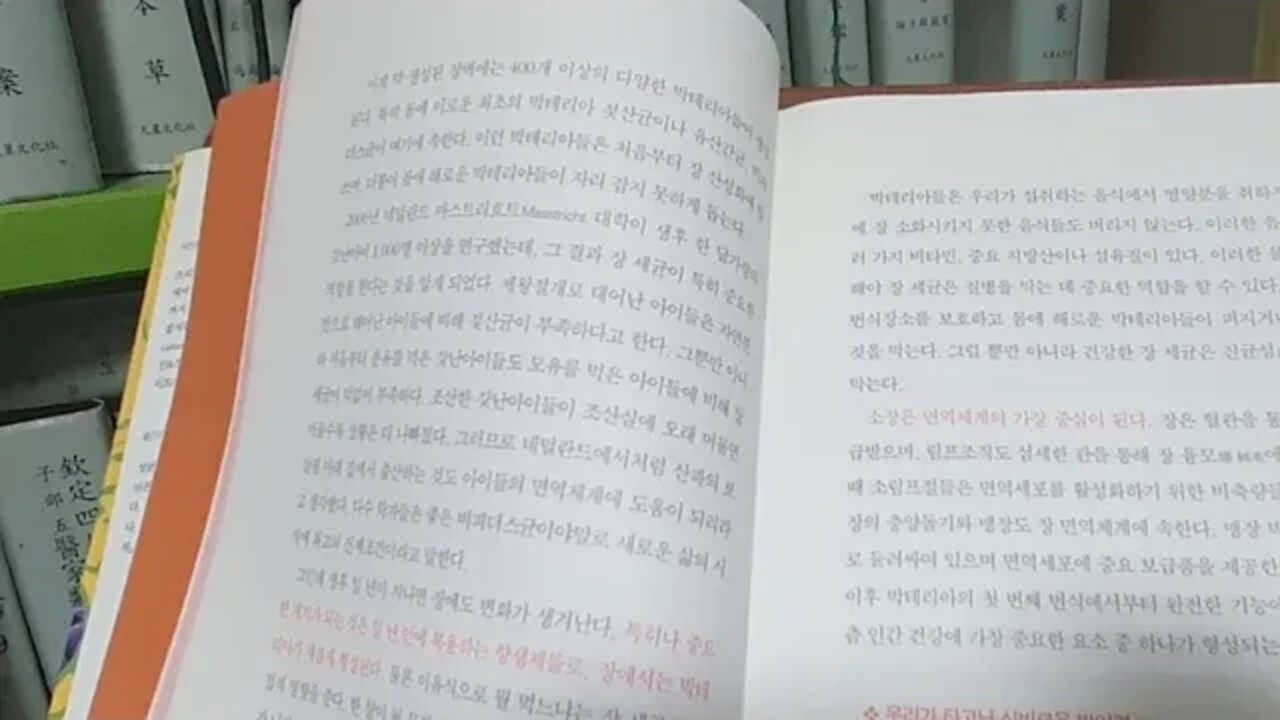 案
本
草
大星文化社
大星文化社
案
子部五
欽定四
醫家類
이제 막 생성된 장벽에는 400개 이상의 다양한 박테리아들이
된다. 특히 몸에 이로운 최초의 박테리아 젖산균이나 유산간균,
더스균이 여기에 속한다. 이런 박테리아들은 처음부터 장 산성화에
쓰며, 더불어 몸에 해로운 박테리아들이 자리 잡지 못하게 돕는다.
2006년 네덜란드 마스트리흐트Maastricht 대학이 생후 한 달가량의
갓난아이 1,000명 이상을 연구했는데, 그 결과 장 세균이 특히 중요한
역할을 한다는 것을 알게 되었다. 제왕절개로 태어난 아이들은 자연분
만으로 태어난 아이들에 비해 젖산균이 부족하다고 한다. 그뿐만 아니
라 처음부터 분유를 먹은 갓난아이들도 모유를 먹은 아이들에 비해 장
세균이 턱없이 부족하다. 조산한 갓난아이들이 조산실에 오래 머물면
머물수록 상황은 더 나빠졌다. 그러므로 네덜란드에서처럼 산파의 보
살핌 아래 집에서 출산하는 것도 아이들의 면역체계에 도움이 되리라
고 생각했다. 다수 학자들은 좋은 비피더스균이야말로 새로운 삶의 시
작에 최고의 전제조건이라고 말한다.
그런데 생후 일 년이 지나면 장에도 변화가 생겨난다. 특히나 중요
한 계기가 되는 것은 일 년 안에 복용하는 항생제들로, 장에서는 박테
리아가 새롭게 형성된다. 물론 이유식으로 뭘 먹느냐는 장
깊게 영향을 준다. 한
박테리아들은 우리가 섭취하는 음식에서 영양분을 취하
에 잘 소화시키지 못한 음식들도 버리지 않는다. 이러한 음
러 가지 비타민, 중요 지방산이나 섬유질이 있다. 이러한 물
해야 장 세균은 질병을 막는 데 중요한 역할을 할 수 있다.
번식장소를 보호하고 몸에 해로운 박테리아들이 퍼지거나
것을 막는다. 그럴 뿐만 아니라 건강한 장 세균은 신균성
막는다.
소장은 면역체계의 가장 중심이 된다. 장은 혈관을 통
급받으며, 림프조직도 섬세한 관을 통해 장 융모
때 소림프절들은 면역세포를 활성화하기 위한 비축량을
장의 충양돌기와 맹장도 장 면역체계에 속한다. 맹장 벽
로 둘러싸여 있으며 면역세포에 중요 보급품을 제공한
이후 박테리아의 첫 번째 번식에서부터 완전한 기능이
춤 인간 건강에 가장 중요한 요소 중 하나가 형성되는
❖ 우리가 타고난 신비로운